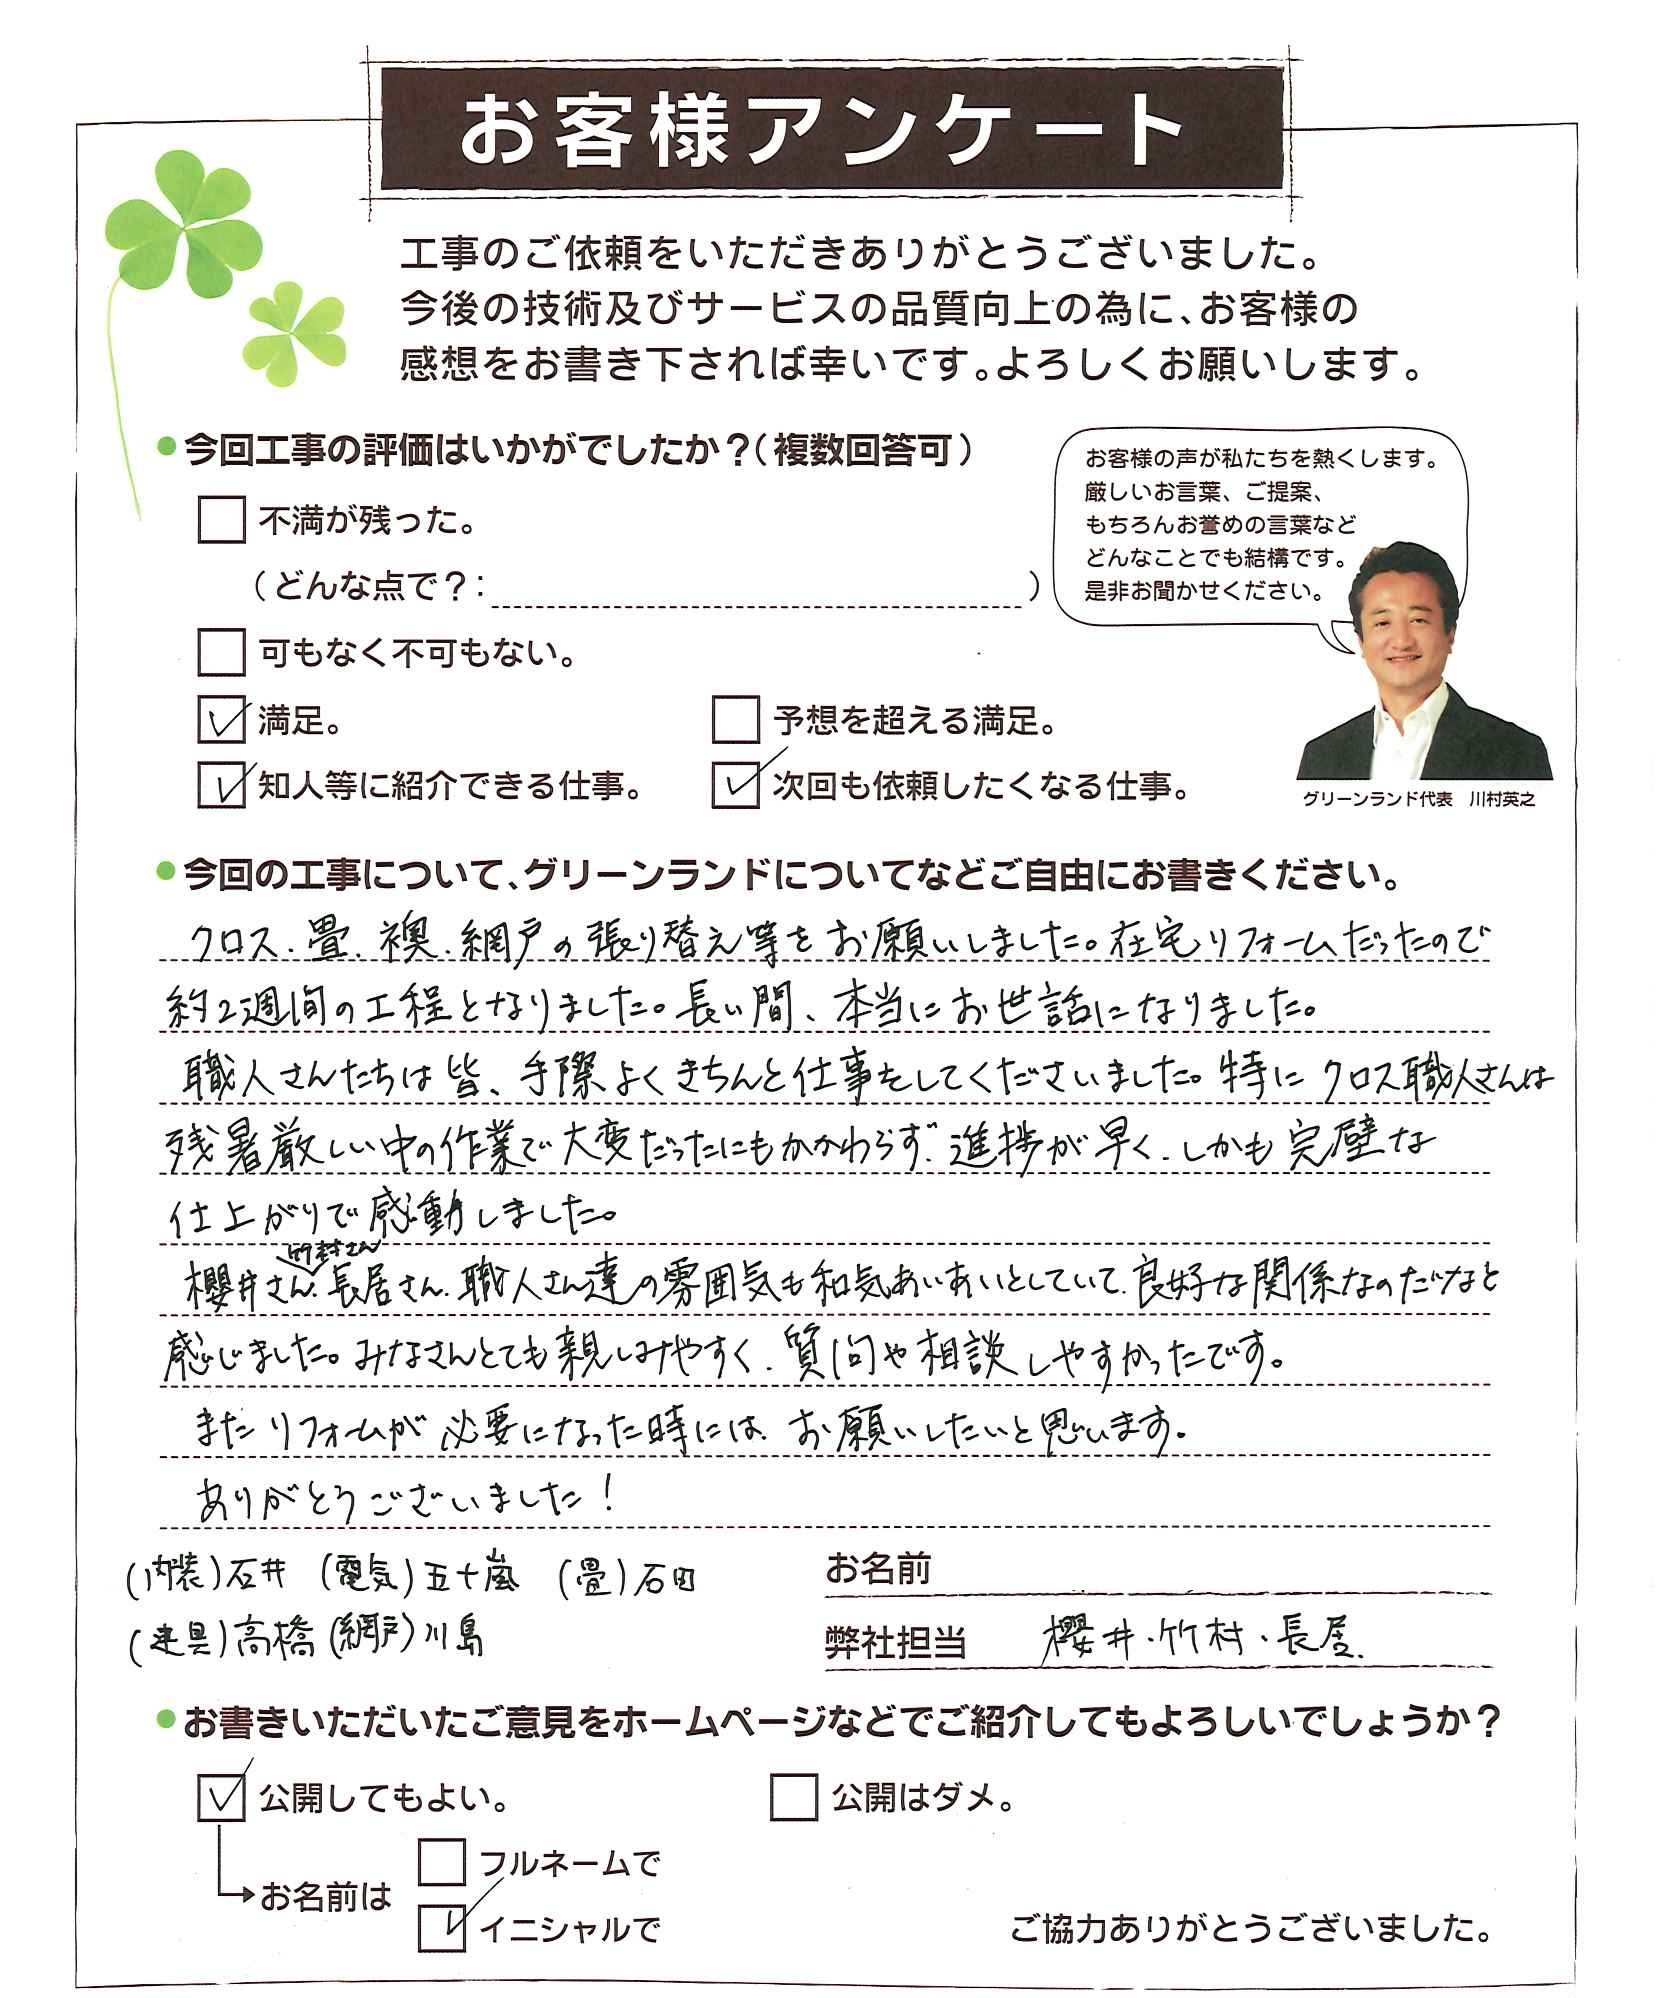 お客様アンケート
工事のご依頼をいただきありがとうございました。
今後の技術及びサービスの品質向上の為に、お客様の
感想をお書き下されば幸いです。よろしくお願いします。
●今回工事の評価はいかがでしたか？（複数回答可）
不満が残った。
（どんな点で？：　　　）
可もなく不可もない。
満足。
予想を超える満足。
知人等に紹介できる仕事。
次回も依頼したくなる仕事。
お客様の声が私たちを熱くします。
厳しいお言葉、ご提案、
もちろんお誉めの言葉など
どんなことでも結構です。
是非お聞かせください。
グリーンランド代表　川村英之
●今回の工事について、グリーンランドについてなどご自由にお書きください。
クロス、畳、襖、網戸の張り替え等をお願いしました。在宅リフォームだったので
約2週間の工程となりました。長い間、本当にお世話になりました。
職人さんたちは皆、手際よくきちんと仕事をしてくださいました。特にクロス職人さんは
残暑厳しい中の作業で大変だったにもかかわらず、進捗が早く、しかも完璧な
仕上がりで感動しました。
竹村さん
櫻井さん、長居さん、職人さん達の雰囲気も和気あいあいとしていて、良好な関係なのだなと
感じました。みなさんとても親しみやすく、質問や相談しやすかったです。
またリフォームが必要になった時には、お願いしたいと思います。
ありがとうございました！
(内装)石井　(電気)五十嵐　(畳)石田
(建具)高橋 (網戸)川島
お名前
弊社担当　櫻井・竹村・長居
●お書きいただいたご意見をホームページなどでご紹介してもよろしいでしょうか？
公開してもよい。
公開はダメ。
お名前は
フルネームで
イニシャルで
ご協力ありがとうございました。